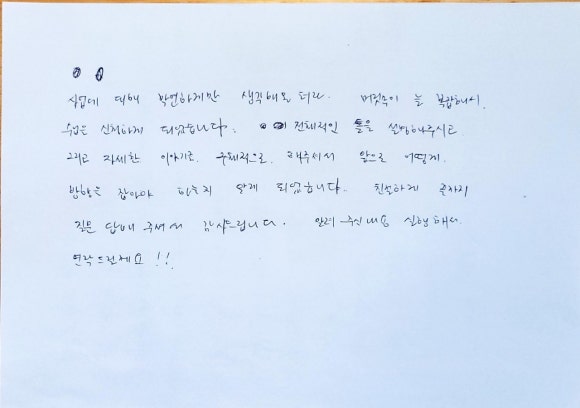 사업에 대해 막연하게만 생각해온 터라. 머릿속이 늘 복잡해서,
수업은 신청하게 되었습니다. 전체적인 틀을 설명해주시고
그리고 자세한 이야기를. 구체적으로. 해주셔서 앞으로 어떻게.
방향을 잡아야 하는지 알게 되었습니다. 친절하게 끝까지
질문 답해 주셔서 감사드립니다. 알려 주신내용 실행해서.
연락드릴께요!!